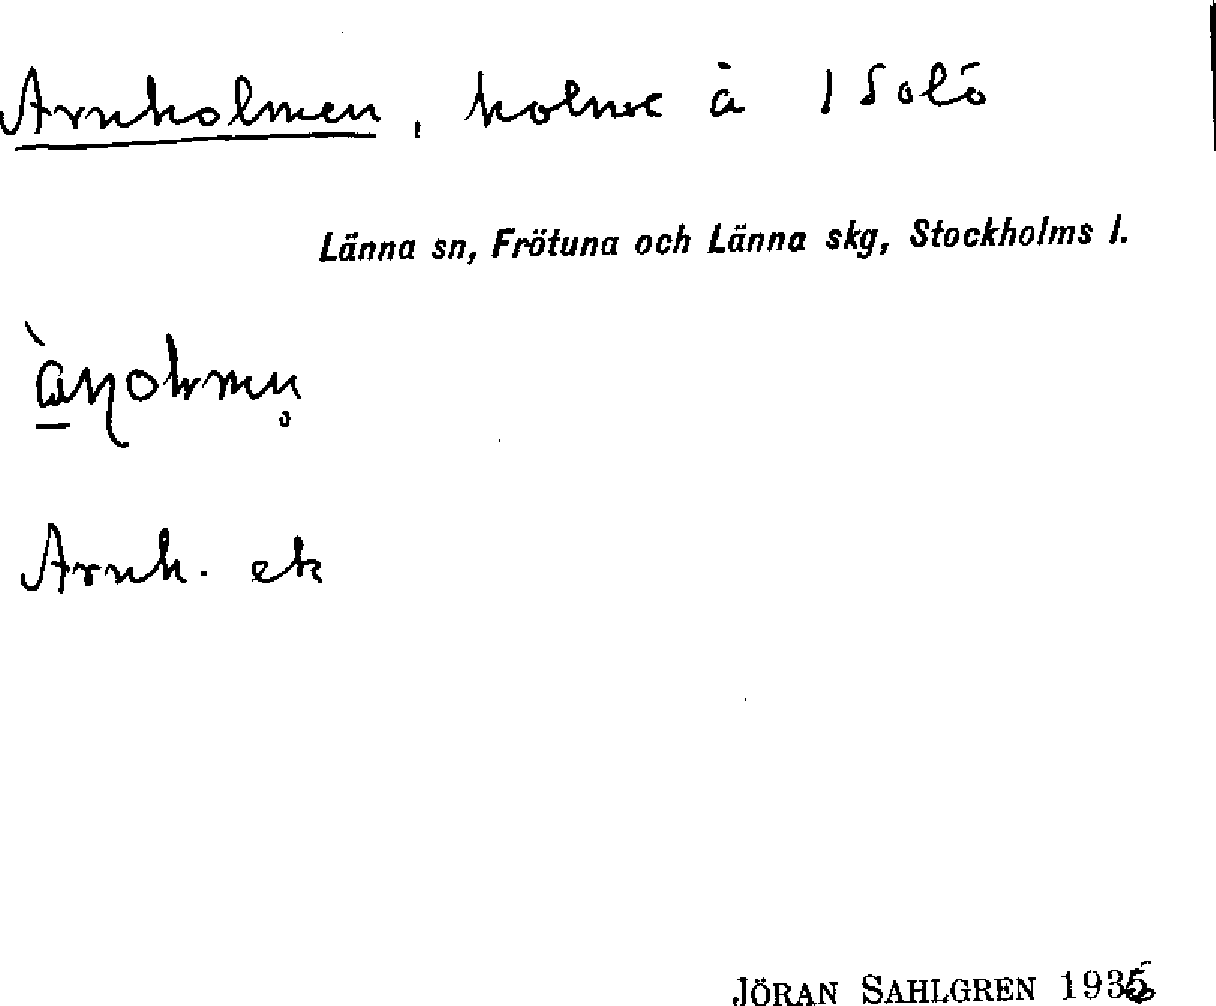 Arnholmen, holme å 1 Solö
Länna sn, Frötuna och Länna skg, Stockholms l.
Arnh. ek
JÖRAN SAHLGREN 1935